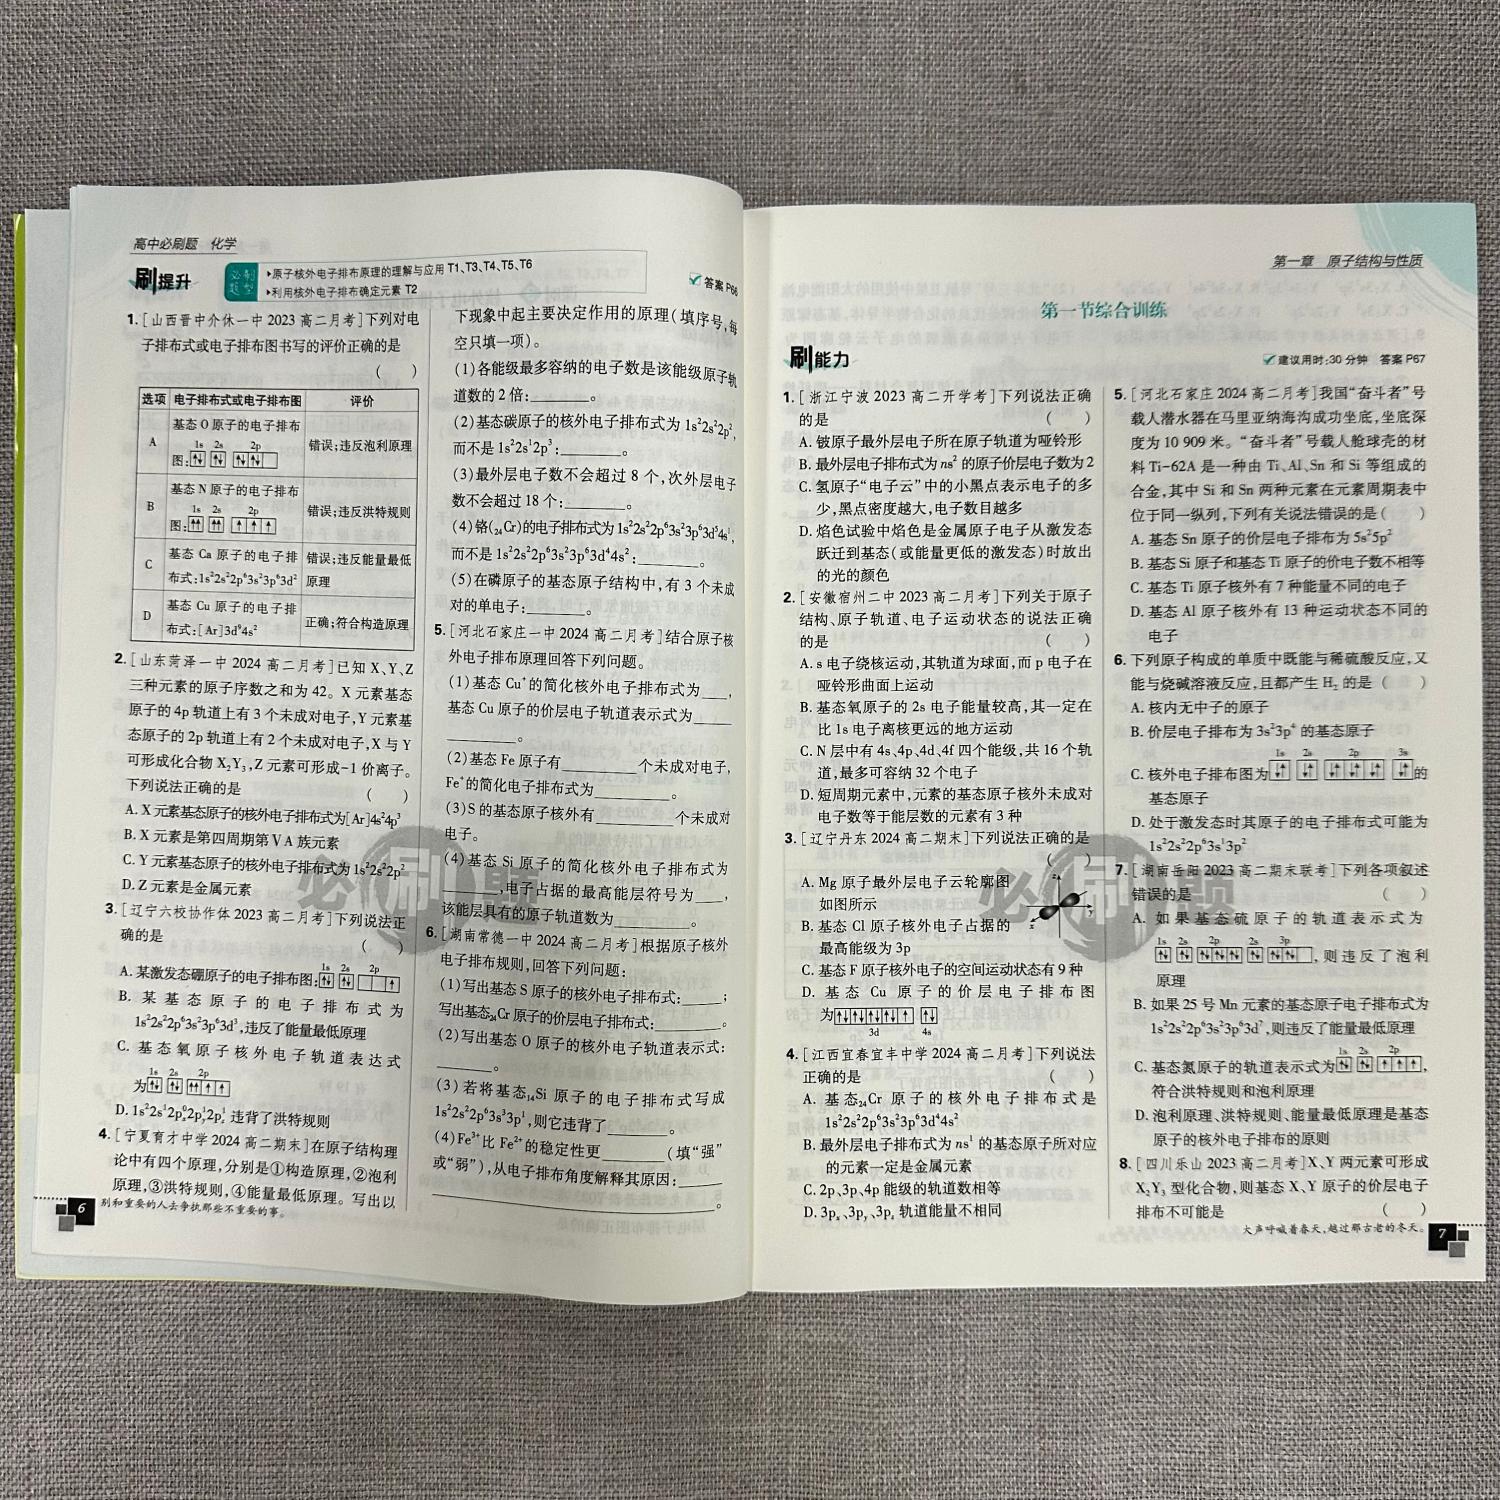 高中必刷题 化学
刷提升
必刷题型
▸原子核外电子排布原理的理解与应用 T1、T3、T4、T5、T6
▸利用核外电子排布确定元素 T2
答案 P66
1.[山西晋中介休一中 2023 高二月考]下列对电
子排布式或电子排布图书写的评价正确的是
( )
选项 电子排布式或电子排布图 评价
A 基态 O 原子的电子排布
1s 2s 2p
图:[↑↓] [↑↓] [↑↓][↑↓][ ] 错误;违反泡利原理
B 基态 N 原子的电子排布
1s 2s 2p
图:[↑↑] [↑↑] [↑][↑][↑] 错误;违反洪特规则
C 基态 Ca 原子的电子排 错误;违反能量最低
布式:1s²2s²2p⁶3s²3p⁶3d² 原理
D 基态 Cu 原子的电子排
布式:[Ar]3d⁹4s² 正确;符合构造原理
2.[山东菏泽一中 2024 高二月考]已知 X、Y、Z
三种元素的原子序数之和为 42。X 元素基态
原子的 4p 轨道上有 3 个未成对电子,Y 元素基
态原子的 2p 轨道上有 2 个未成对电子,X 与 Y
可形成化合物 X₂Y₃,Z 元素可形成-1 价离子。
下列说法正确的是 ( )
A. X 元素基态原子的核外电子排布式为[Ar]4s²4p³
B. X 元素是第四周期第ⅤA 族元素
C. Y 元素基态原子的核外电子排布式为 1s²2s²2p²
D. Z 元素是金属元素
3.[辽宁六校协作体 2023 高二月考]下列说法正
确的是 ( )
1s 2s 2p
A. 某激发态硼原子的电子排布图:[↑↓] [↑↓] [ ][ ][↑]
B. 某基态原子的电子排布式为
1s²2s²2p⁶3s²3p⁶3d³,违反了能量最低原理
C. 基态氧原子核外电子轨道表达式
1s 2s 2p
为[↑↓] [↑↓] [↑↑][↑][↑]
D. 1s²2s¹2pₓ²2p_y¹2p_z¹ 违背了洪特规则
4.[宁夏育才中学 2024 高二期末]在原子结构理
论中有四个原理,分别是①构造原理,②泡利
原理,③洪特规则,④能量最低原理。写出以
6
别和重要的人去争执那些不重要的事。
下现象中起主要决定作用的原理(填序号,每
空只填一项)。
(1)各能级最多容纳的电子数是该能级原子轨
道数的 2 倍:______。
(2)基态碳原子的核外电子排布式为 1s²2s²2p²,
而不是 1s²2s¹2p³:______。
(3)最外层电子数不会超过 8 个,次外层电子
数不会超过 18 个:______。
(4)铬(₂₄Cr)的电子排布式为 1s²2s²2p⁶3s²3p⁶3d⁵4s¹,
而不是 1s²2s²2p⁶3s²3p⁶3d⁴4s²:______。
(5)在磷原子的基态原子结构中,有 3 个未成
对的单电子:______。
5.[河北石家庄一中 2024 高二月考]结合原子核
外电子排布原理回答下列问题。
(1)基态 Cu⁺的简化核外电子排布式为___,
基态 Cu 原子的价层电子轨道表示式为____
______。
(2)基态 Fe 原子有______个未成对电子,
Fe⁺的简化电子排布式为______。
(3)S 的基态原子核外有______个未成对
电子。
(4)基态 Si 原子的简化核外电子排布式为
______,电子占据的最高能层符号为___,
该能层具有的原子轨道数为______。
6.[湖南常德一中 2024 高二月考]根据原子核外
电子排布规则,回答下列问题:
(1)写出基态 S 原子的核外电子排布式:____;
写出基态₂₄Cr 原子的价层电子排布式:______。
(2)写出基态 O 原子的核外电子轨道表示式:
______。
(3)若将基态₁₄Si 原子的电子排布式写成
1s²2s²2p⁶3s³3p¹,则它违背了______。
(4)Fe³⁺比 Fe²⁺的稳定性更______(填“强”
或“弱”),从电子排布角度解释其原因:____
______。
第一章 原子结构与性质
第一节综合训练
刷能力
建议用时:30 分钟 答案 P67
1.[浙江宁波 2023 高二开学考]下列说法正确
的是 ( )
A. 铍原子最外层电子所在原子轨道为哑铃形
B. 最外层电子排布式为 ns² 的原子价层电子数为 2
C. 氢原子“电子云”中的小黑点表示电子的多
少,黑点密度越大,电子数目越多
D. 焰色试验中焰色是金属原子电子从激发态
跃迁到基态(或能量更低的激发态)时放出
的光的颜色
2.[安徽宿州二中 2023 高二月考]下列关于原子
结构、原子轨道、电子运动状态的说法正确
的是 ( )
A. s 电子绕核运动,其轨道为球面,而 p 电子在
哑铃形曲面上运动
B. 基态氧原子的 2s 电子能量较高,其一定在
比 1s 电子离核更远的地方运动
C. N 层中有 4s、4p、4d、4f 四个能级,共 16 个轨
道,最多可容纳 32 个电子
D. 短周期元素中,元素的基态原子核外未成对
电子数等于能层数的元素有 3 种
3.[辽宁丹东 2024 高二期末]下列说法正确的是
( )
A. Mg 原子最外层电子云轮廓图
如图所示
z
x
y
B. 基态 Cl 原子核外电子占据的
最高能级为 3p
C. 基态 F 原子核外电子的空间运动状态有 9 种
D. 基态 Cu 原子的价层电子排布图
为[↑↓][↑↓][↑↓][↑↓][↑] [↑↓]
3d 4s
4.[江西宜春宜丰中学 2024 高二月考]下列说法
正确的是 ( )
A. 基态₂₄Cr 原子的核外电子排布式是
1s²2s²2p⁶3s²3p⁶3d⁴4s²
B. 最外层电子排布式为 ns¹ 的基态原子所对应
的元素一定是金属元素
C. 2p、3p、4p 能级的轨道数相等
D. 3pₓ、3p_y、3p_z 轨道能量不相同
5.[河北石家庄 2024 高二月考]我国“奋斗者”号
载人潜水器在马里亚纳海沟成功坐底,坐底深
度为 10 909 米。“奋斗者”号载人舱球壳的材
料 Ti-62A 是一种由 Ti、Al、Sn 和 Si 等组成的
合金,其中 Si 和 Sn 两种元素在元素周期表中
位于同一纵列,下列有关说法错误的是( )
A. 基态 Sn 原子的价层电子排布为 5s²5p²
B. 基态 Si 原子和基态 Ti 原子的价电子数不相等
C. 基态 Ti 原子核外有 7 种能量不同的电子
D. 基态 Al 原子核外有 13 种运动状态不同的
电子
6. 下列原子构成的单质中既能与稀硫酸反应,又
能与烧碱溶液反应,且都产生 H₂ 的是 ( )
A. 核内无中子的原子
B. 价层电子排布为 3s²3p⁴ 的基态原子
1s 2s 2p 3s
C. 核外电子排布图为[↑↓] [↑↓] [↑↓][↑↓][↑↓] [↑↓]的
基态原子
D. 处于激发态时其原子的电子排布式可能为
1s²2s²2p⁶3s¹3p²
7.[湖南岳阳 2023 高二期末联考]下列各项叙述
错误的是 ( )
A. 如果基态硫原子的轨道表示式为
1s 2s 2p 2s 3p
[↑↓] [↑↓] [↑↓][↑↓][↑↓] [↑↓] [↑↓][↑↓][ ],则违反了泡利
原理
B. 如果 25 号 Mn 元素的基态原子电子排布式为
1s²2s²2p⁶3s²3p⁶3d⁷,则违反了能量最低原理
1s 2s 2p
C. 基态氮原子的轨道表示式为[↑↓] [↑↓] [↑][↑][↑],
符合洪特规则和泡利原理
D. 泡利原理、洪特规则、能量最低原理是基态
原子的核外电子排布的原则
8.[四川乐山 2023 高二月考]X、Y 两元素可形成
X₂Y₃ 型化合物,则基态 X、Y 原子的价层电子
排布不可能是 ( )
大声呼喊着春天,越过那古老的冬天。
7
必刷题
必刷题